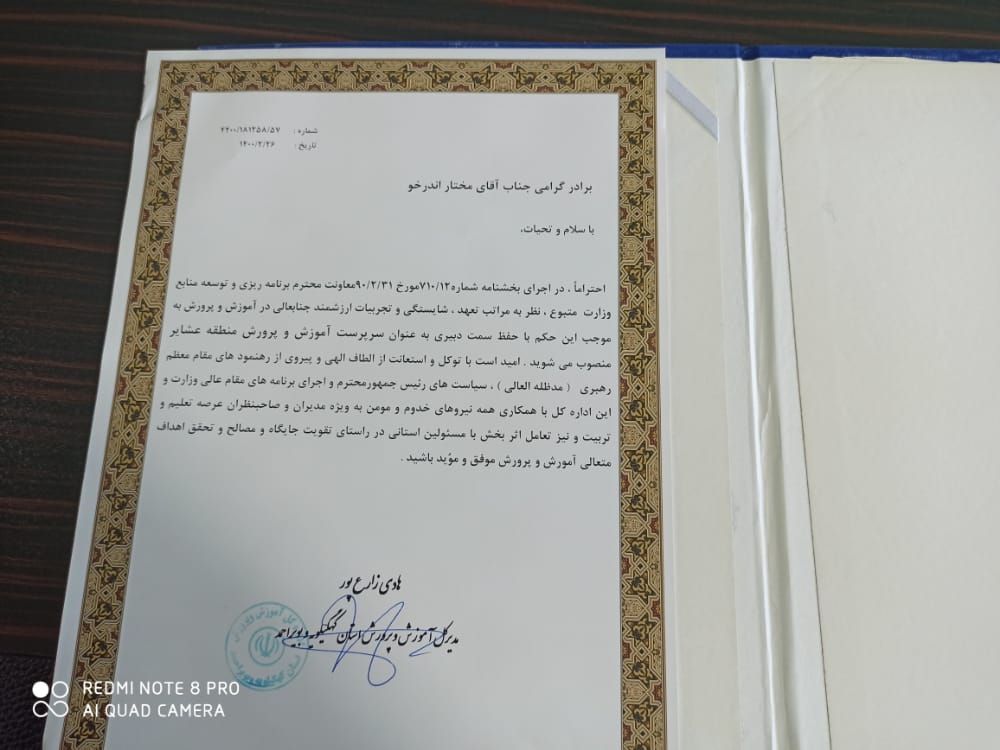 شماره : ۴۴۰۰/۱۸۱۲۵۸/۵۷
تاریخ : ۱۴۰۰/۲/۲۶
برادر گرامی جناب آقای مختار اندرخو
با سلام و تحیات،
احتراماً ، در اجرای بخشنامه شماره۷۱۰/۱۲مورخ ۹۰/۲/۳۱معاونت محترم برنامه ریزی و توسعه منابع
وزارت متبوع ، نظر به مراتب تعهد ، شایستگی و تجربیات ارزشمند جنابعالی در آموزش و پرورش به
موجب این حکم با حفظ سمت دبیری به عنوان سرپرست آموزش و پرورش منطقه عشایر
منصوب می شوید . امید است با توکل و استعانت از الطاف الهی و پیروی از رهنمود های مقام معظم
رهبری ( مدظله العالی ) ، سیاست های رئیس جمهورمحترم و اجرای برنامه های مقام عالی وزارت و
این اداره کل با همکاری همه نیروهای خدوم و مومن به ویژه مدیران و صاحبنظران عرصه تعلیم و
تربیت و نیز تعامل اثر بخش با مسئولین استانی در راستای تقویت جایگاه و مصالح و تحقق اهداف
متعالی آموزش و پرورش موفق و مؤید باشید .
هادی زارع پور
مدیرکل آموزش و پرورش استان کهگیلویه و بویراحمد
REDMI NOTE 8 PRO
AI QUAD CAMERA